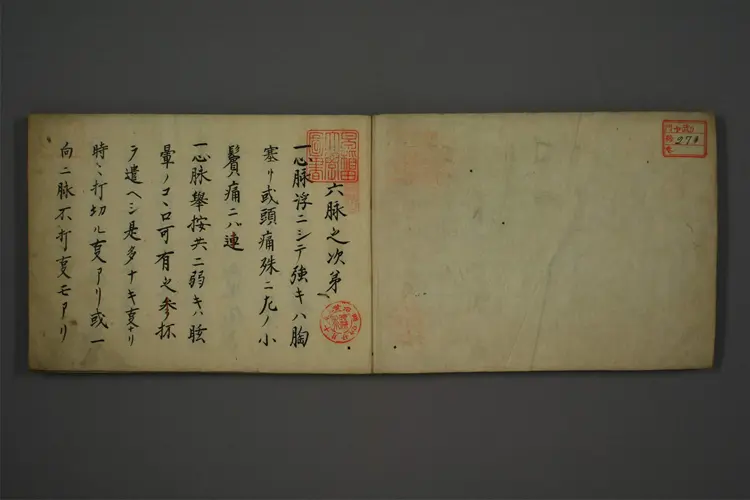 六脉之次第
一心脉浮ニシテ強キハ胸
塞リ或頭痛殊ニ左ノ小
鬢痛ニハ連
一心脉舉按共ニ弱キハ眩
暈ノコヽロ可有之参抔
ヲ遣ヘシ是多ナキ亥ナリ
時〻打切ル亥アリ或一
向ニ脉不打亥モアリ
271